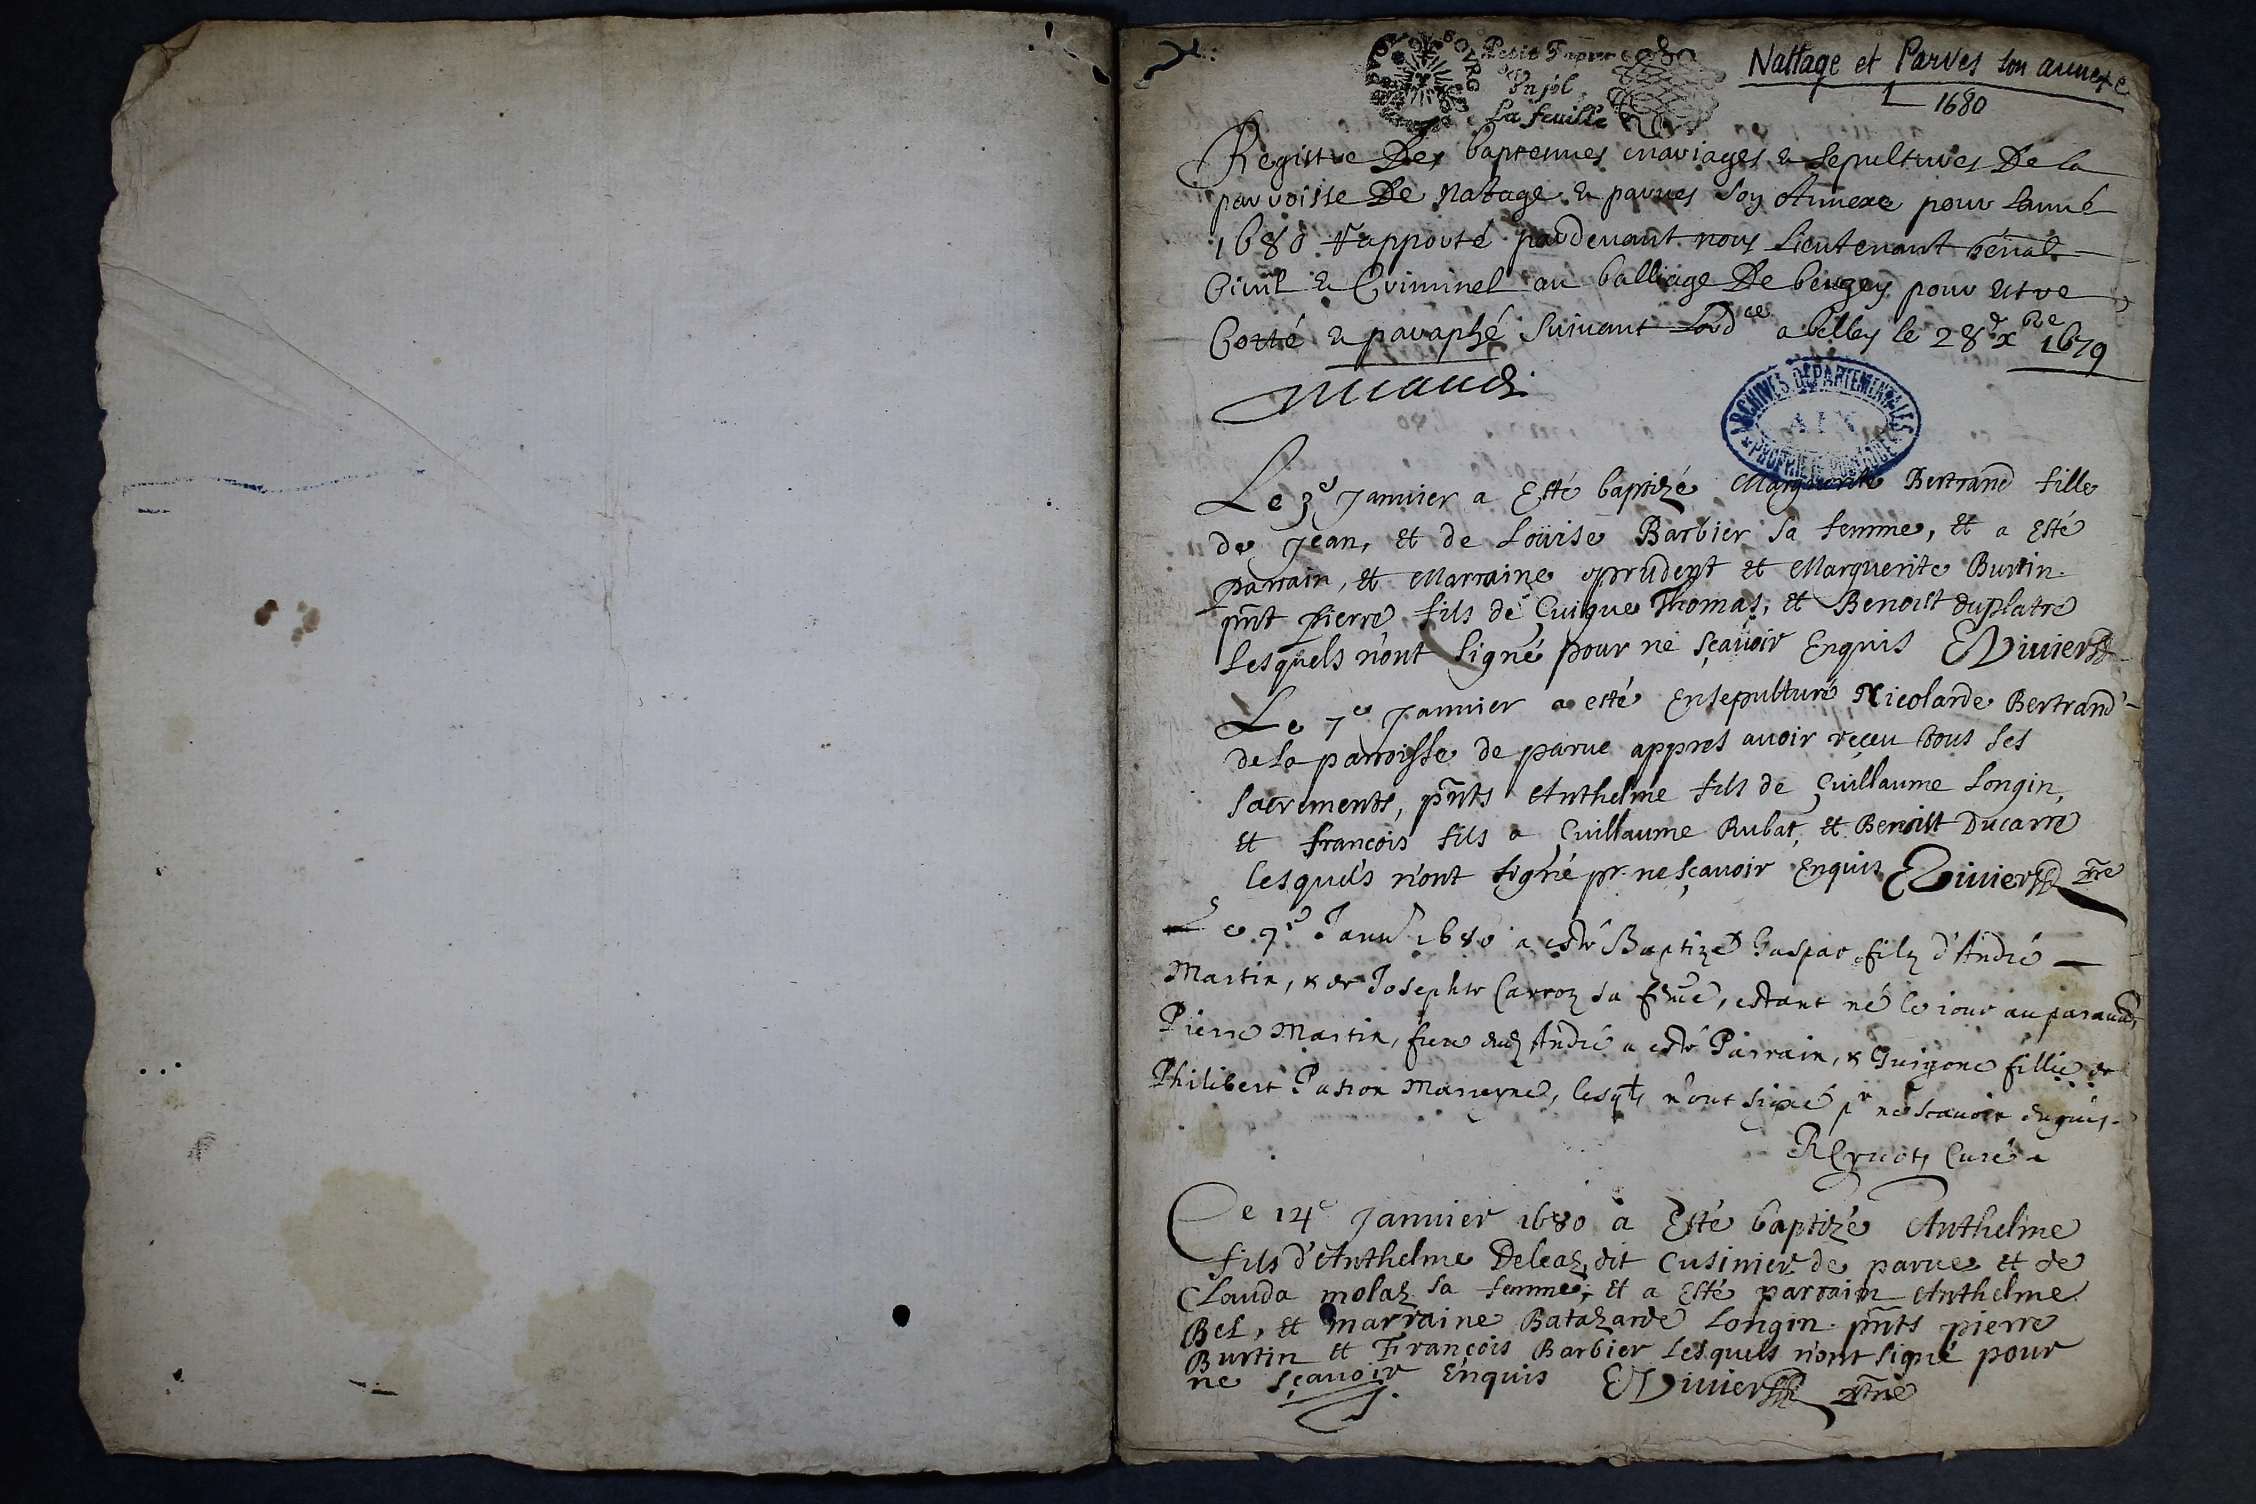 Nattage et Parves son annexe
1680
BOVRG
Petit Papier
Un sol
La feuille
Registre Des baptesmes mariages & sepultures De la
parroisse De Natage & parves son Annexe pour lanné
1680 rapporté pardevant nous Lieutenant gēnal
Civil & Criminel au balliage De beugey pour estre
Cotté & paraphé suivant Lordce a belley le 28e xbre 1679
ARCHIVES DEPARTEMENTALES
AIN
PROPRIETE PUBLIQUE
Le 3e Janvier a Esté baptizé Marguerite Bertrand fille
de Jean, et de Loüise Barbier sa femme, et a Esté
parrain, et Marraine prudent et Marguerite Burtin
pnt pierre fils de Guigue Thomas, et Benoist duplatre
Lesquels n'ont signé pour ne sçavoir Enquis EVivier
Le 7e Janvier a esté Ensepulturé Nicolarde Bertrand
de la parroisse de parve appres avoir reçeu tous ses
sacrements, pnts Anthelme fils de Guillaume Longin,
et françois fils a Guillaume Rubat, et Benoist Ducarre
Lesquels n'ont signé pr ne sçavoir Enquis EVivier ptre
Le 7e Janv 1680 a esté Baptizé Gaspar filz d'André
Martin, & de Josephte Carroz sa feme, estant né le iour auparavat,
Pierre Martin, frere dud André a esté Parrain, & Guigone fillie de
Philibert Pation Marreyne, lesqls n'ont signé pr ne scavoir enquis.
Curé
Ce 14e Janvier 1680 a Esté baptizé Anthelme
fils d'Anthelme Deleaz, dit Cusinier de parve et de
Clauda molaz sa femme, et a Esté parrain Anthelme
Bel, et marraine Batazarde Longin. pnts pierre
Burtin et François Barbier Lesquels n'ont signé pour
ne sçavoir Enquis EVivier ptre